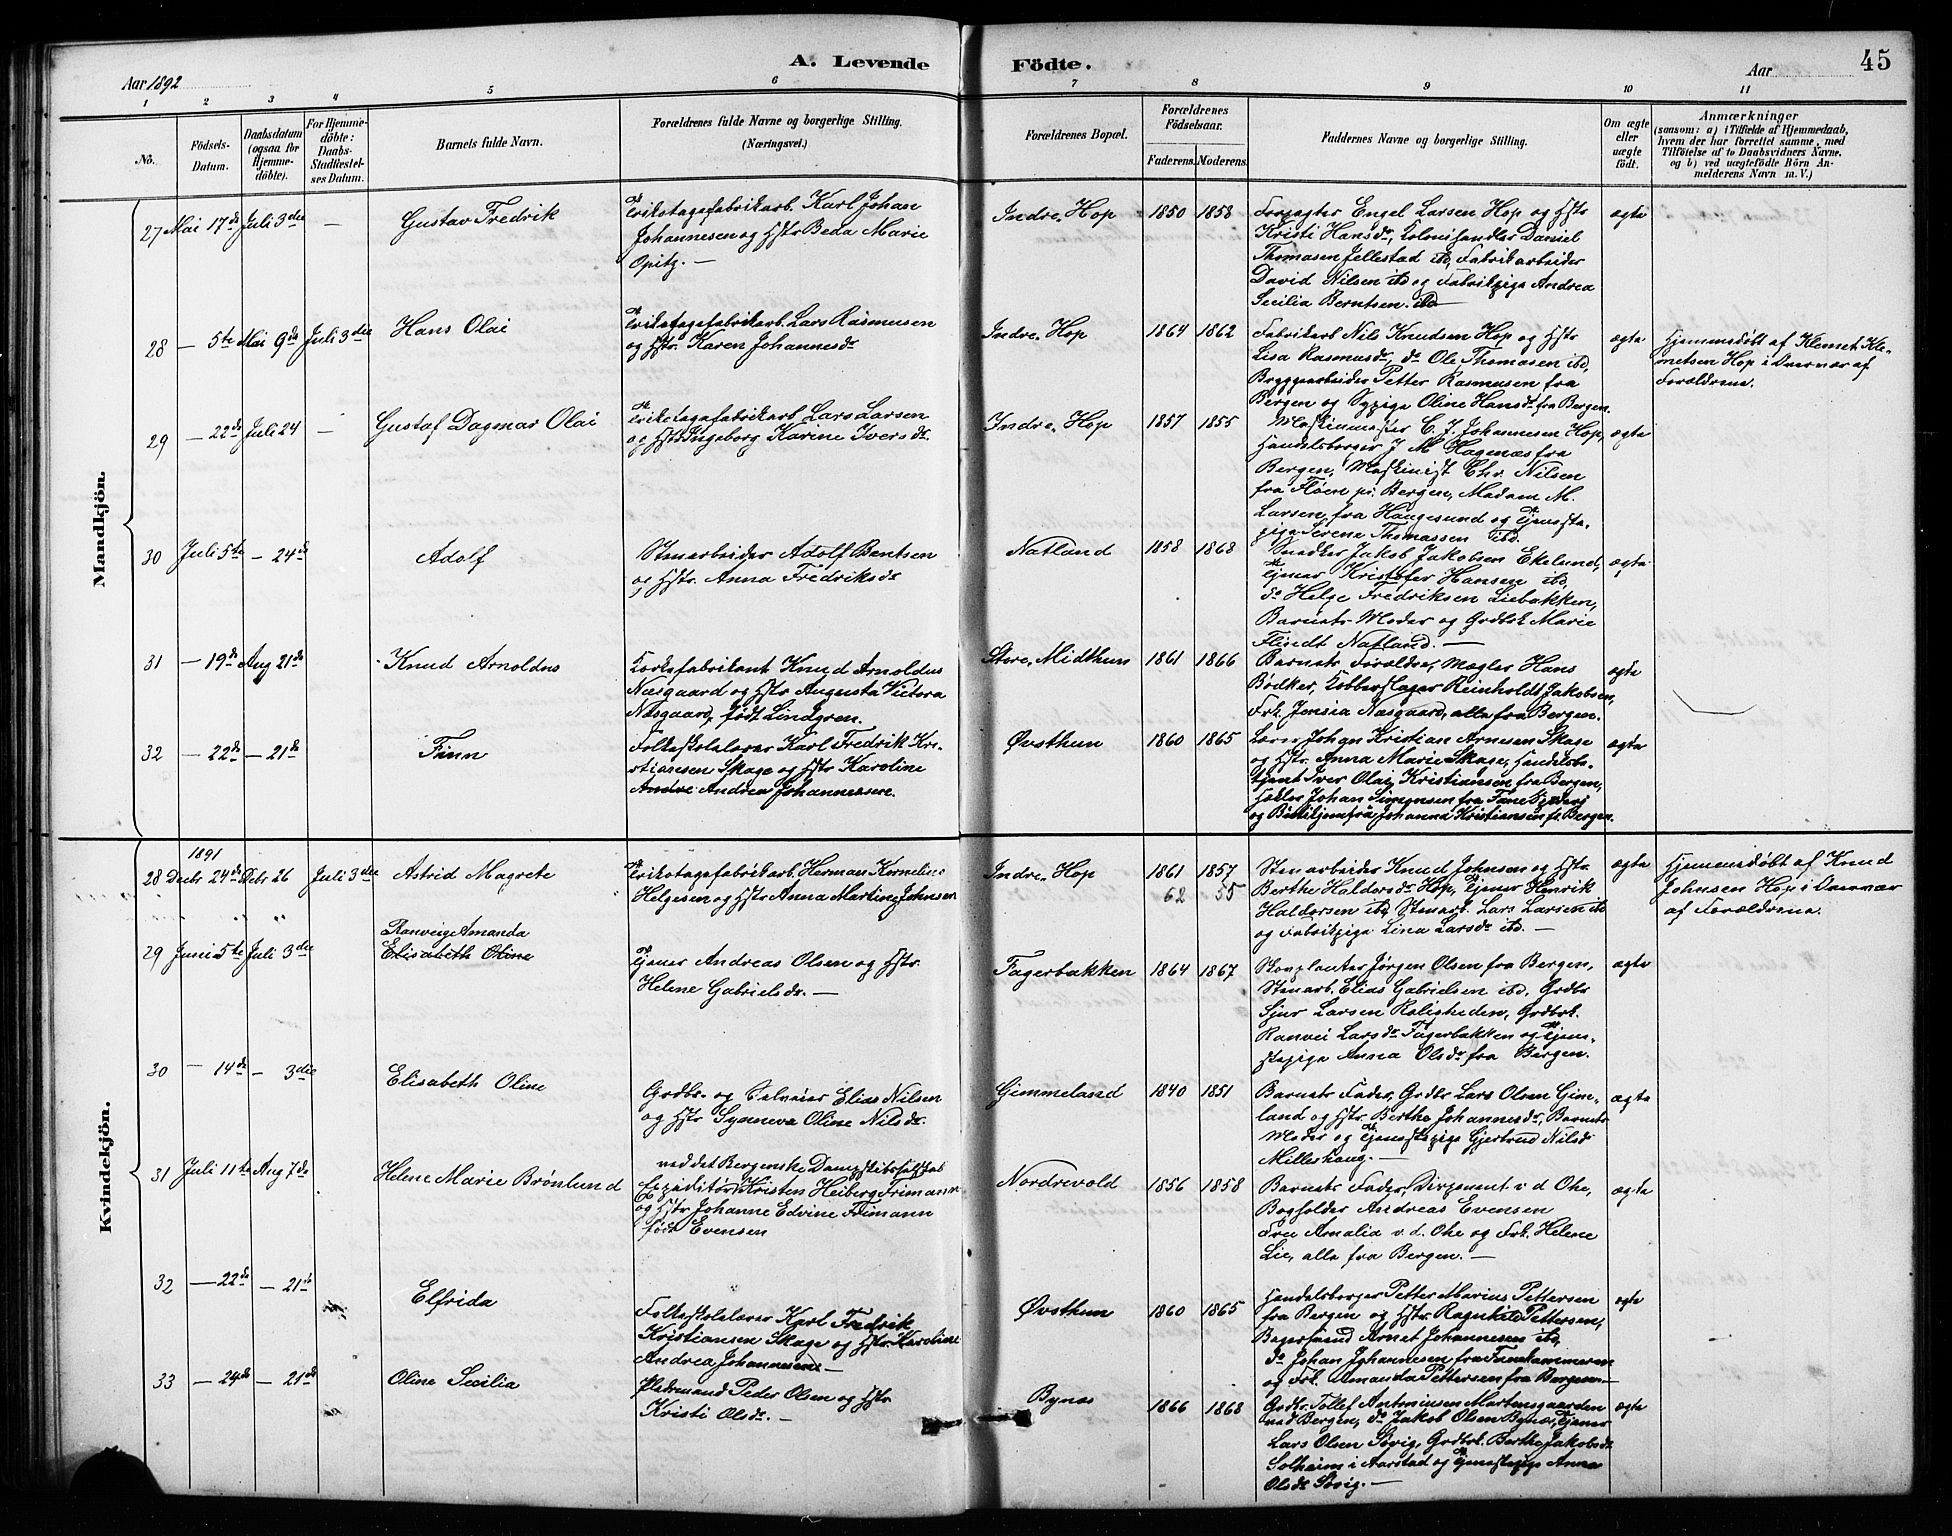 Aar 1892
A. Levende
Födte.
Aar
45
1 2 3 4 5 6 7 8 9 10 11
No.
Födsels-
Datum.
Daabsdatum
(ogsaa for
Hjemme-
döbte).
For Hjemme-
döbte:
Daabs-
Stadfestel-
ses Datum.
Barnets fulde Navn.
Forældrenes fulde Navne og borgerlige Stilling.
(Næringsvei.)
Forældrenes Bopæl.
Forældrenes
Födselsaar.
Faderens. Moderens.
Faddernes Navne og borgerlige Stilling.
Om ægte
eller
uægte
födt.
Anmærkninger
(saasom: a) i Tilfælde af Hjemmedaab,
hvem der har forrettet samme, med
Tilföielse af to Daabsvidners Navne,
og b) ved uægtefödte Börn An-
melderens Navn m. V.)
Mandkjön.
27 Mai 17de Juli 3die — Gustav Fredrik
Trikotagefabrikarb. Karl Johan
Johannesen og Hstr. Beda Marie
Opitz. —
Indre, Hop 1850 1858
Forpagter Engel Larsen Hop og Hstr
Kristi Hansdr, Kolonihandler Daniel
Thomasen Jellestad ibd, Fabrikarbeider
David Nilsen ibd og Fabrikpige Andrea
Secilia Berntsen. ibd
ægte
28 — 5te Mai 9de Juli 3die Hans Olai
Trikotagefabrikarb. Lars Rasmusen
og Hstr. Karen Johannesdr
Indre, Hop 1864 1862
Fabrikarb Nils Knudsen Hop og Hstr
Lisa Rasmusdr, do Ole Thomasen ibd,
Bryggearbeider Petter Rasmusen fra
Bergen og Sypige Oline Hansdr fra Bergen.
ægte
Hjemmedøbt af Klemet Kle-
metsen Hop i Overvær af
Forældrene.
29 — 22de Juli 24 — Gustaf Dagmar Olai
Trikotagefabrikarb. Lars Larsen
og Hstr. Ingeborg Karine Iversdr.
Indre, Hop 1857 1855
Maskinmester C. J. Johannesen Hop,
Handelsborger J M Hagenæs fra
Bergen, Maskinist Chr. Nilsen
fra Fløen pr. Bergen, Madam M.
Larsen fra Haugesund og Tjeneste-
pige Serene Thomassen ibd.
ægte
30 Juli 5te — 24de Adolf
Stenarbeider Adolf Bentsen
og Hstr. Anna Fredriksdr
Natland 1858 1868
Snedker Jakob Jakobsen Ekelund,
Tjener Kristofer Hansen ibd,
do Helge Fredriksen Liebakken,
Barnets Moder og Grdbrk Marie
Flindt Natland. —
ægte
31 — 19de Aug 21de Knud Arnoldus
Korksfabrikant Knud Arnoldus
Næsgaard og Hstr Augusta Victora
Næsgaard, født Lindgren.
Store, Midthun 1861 1866
Barnets Forældre, Mægler Hans
Bødker, Kobberslager Reinholdt Jakobsen,
Frk. Jensia Næsgaard, alle fra Bergen.
ægte
32 — 22de — 21de Finn
Folkeskolelærer Karl Fredrik Kri-
stiansen Skage og Hstr Karoline
Andre Andrea Johannessen.
Øvsthun 1860 1865
Lærer Johan Kristian Arnesen Skage
og Hstr. Anna Marie Skage, Handelsbe-
tjent Iver Olai Kristiansen fra Bergen,
Johan Simonsen fra Fane
og Johanna Kristiansen fr. Bergen.
ægte
Kvindekjön.
1891
28 Decbr 24de Debr 26 Juli 3die Astrid Magrete
Trikotagefabrikarb. Herman Kornelius
Helgesen og Hstr Anna Martine Johnsen
Indre, Hop 1861 1857
62 55
Stenarbeider Knud Johnsen og Hstr.
Berthe Haldorsdr Hop, Tjener Henrik
Haldorsen ibd, Stenarb. Lars Larsen ibd
og Fabrikpige Lina Larsdr ibd. —
ægte
Hjemmedøbt af Knud
Johnsen Hop i Overvær
af Forældrene.
Ranveig Amanda
29 Juni 5te Juli 3die Elisabeth Oline
Tjener Andreas Olsen og Hstr.
Helene Gabrielsdr. —
Fagerbakken 1864 1867
Skovplanter Jørgen Olsen fra Bergen,
Stenarb. Elias Gabrielsen ibd, Grdbr
Sjur Larsen Rolighe​den, Grdbrk.
Ranvei Larsdr Fagerbakken og Tjene-
stepige Anna Olsdr fra Bergen.
ægte
30 — 14de — 3die Elisabeth Oline
Grdbr. og Selveier Elias Nilsen
og Hstr Synneva Oline Nilsdr.
Gimmeland 1840 1851
Barnets Fader, Grdbr Lars Olsen Gim-
land og Hstr. Berthe Johannesdr, Barnets
Moder og Tjenestepige Gjertrud Nilsdr
Milleshaug. —
ægte
31 Juli 11te Aug 7de Helene Marie Brønlund
ved det Bergenske Dampskibsselskab
Expeditør Kristen Heiberg Frimann
og Hstr. Johanne Edvine Frimann
født Evensen
Nordrevold 1856 1858
Barnets Fader, Disponent v d Ohe,
Bogholder Andreas Evensen
Fru Amalia v. d. Ohe og Frk. Helene
Lie, alle fra Bergen. —
ægte
32 — 22de — 21de Elfrida
Folkeskolelærer Karl Fredrik
Kristiansen Skage og Hstr. Karoline
Andrea Johannesen —
Øvsthun 1860 1865
Handelsborger Petter Marius Pettersen
fra Bergen og Hstr. Ragnhild Pettersen,
Bagersvend Arnet Johannesen ibd,
do Johan Johannesen fra Fanehammeren
og Frk. Amanda Pettersen fra Bergen.
ægte
33 — 24de — 21de Oline Secilia
Pladsmand Peder Olsen og Hstr
Kristi Olsdr. —
Bynæs 1866 1868
Grdbr. Tollef Antoniusen Martensgaarden
ved Bergen, do Jakob Olsen Bynæs, Tjener
Lars Olsen Søvig, Grdbrk. Berthe Jakobsdr
Solheim i Aarstad og Tjenestepige Anna
Olsdr Søvig. —
ægte